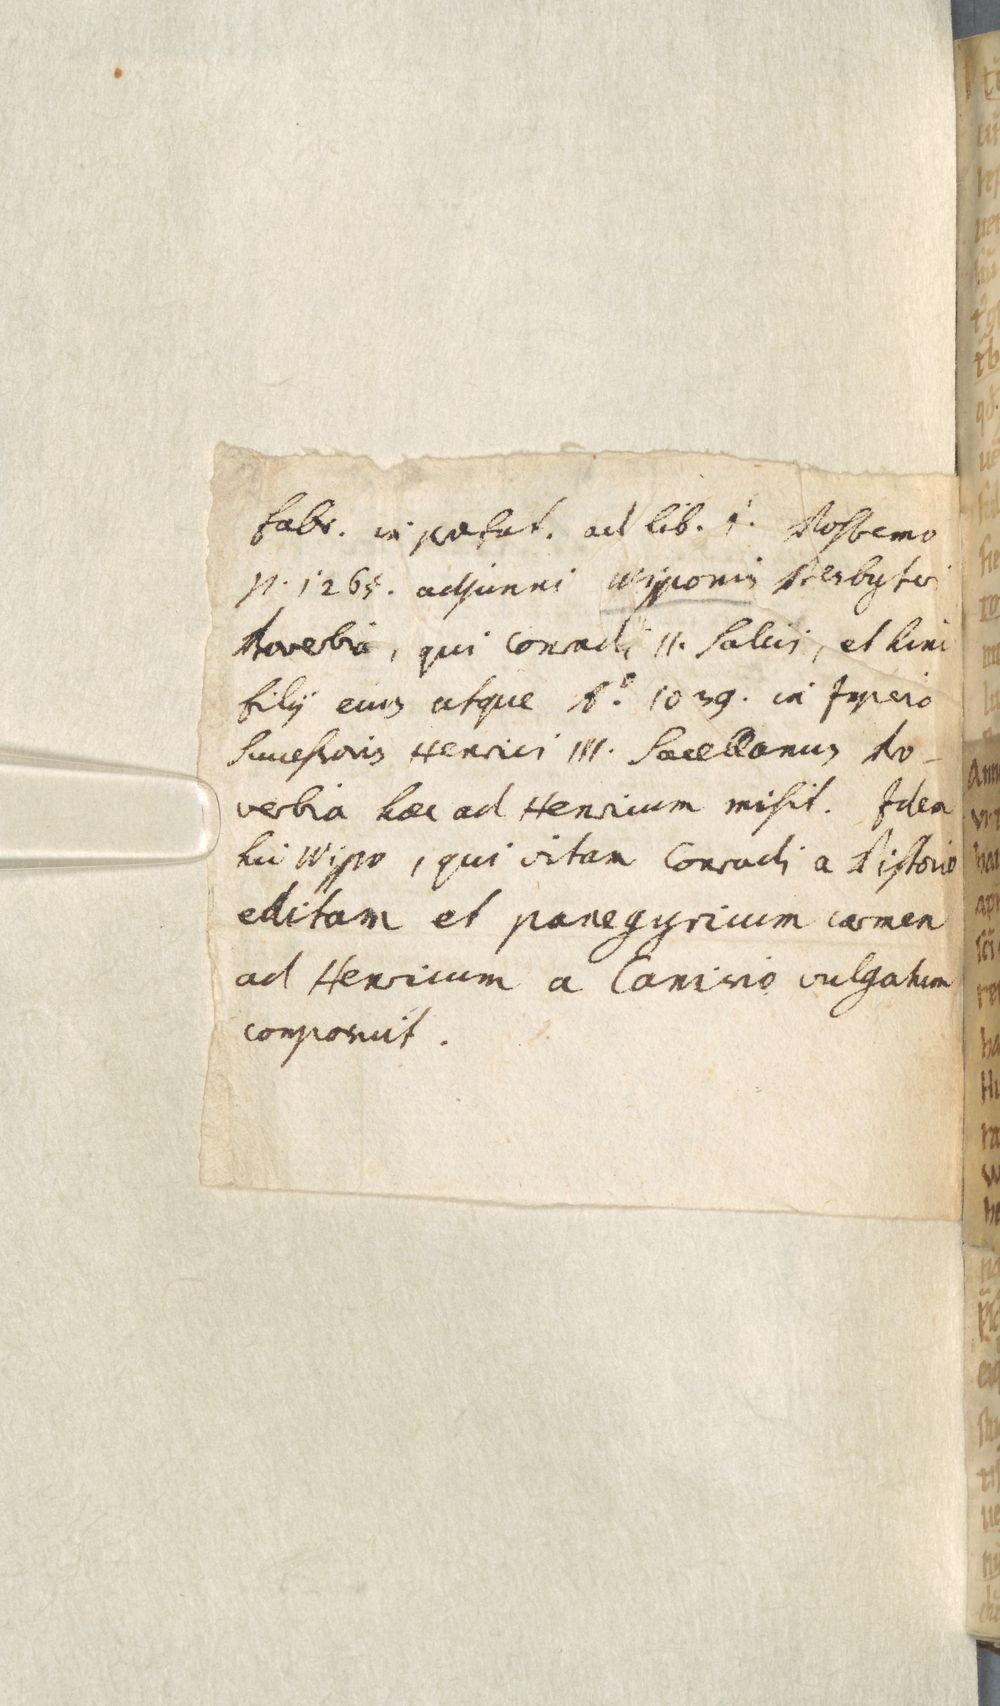 Fabr. in præfat. ad lib. 1. Postremo
p. 1265. adjunxi Wipponis Presbyteri
Proverbia, qui Conradi II. Salici, et hinc
filij eius atque Aº. 1039. in Imperio
Successoris Henrici III. Sacellanus Pro-
verbia hæc ad Henricum misit. Idem
hic Wippo, qui vitam Conradi a Pistorio
editam et panegyricum carmen
ad Henricum a Canisio vulgatum
composuit.